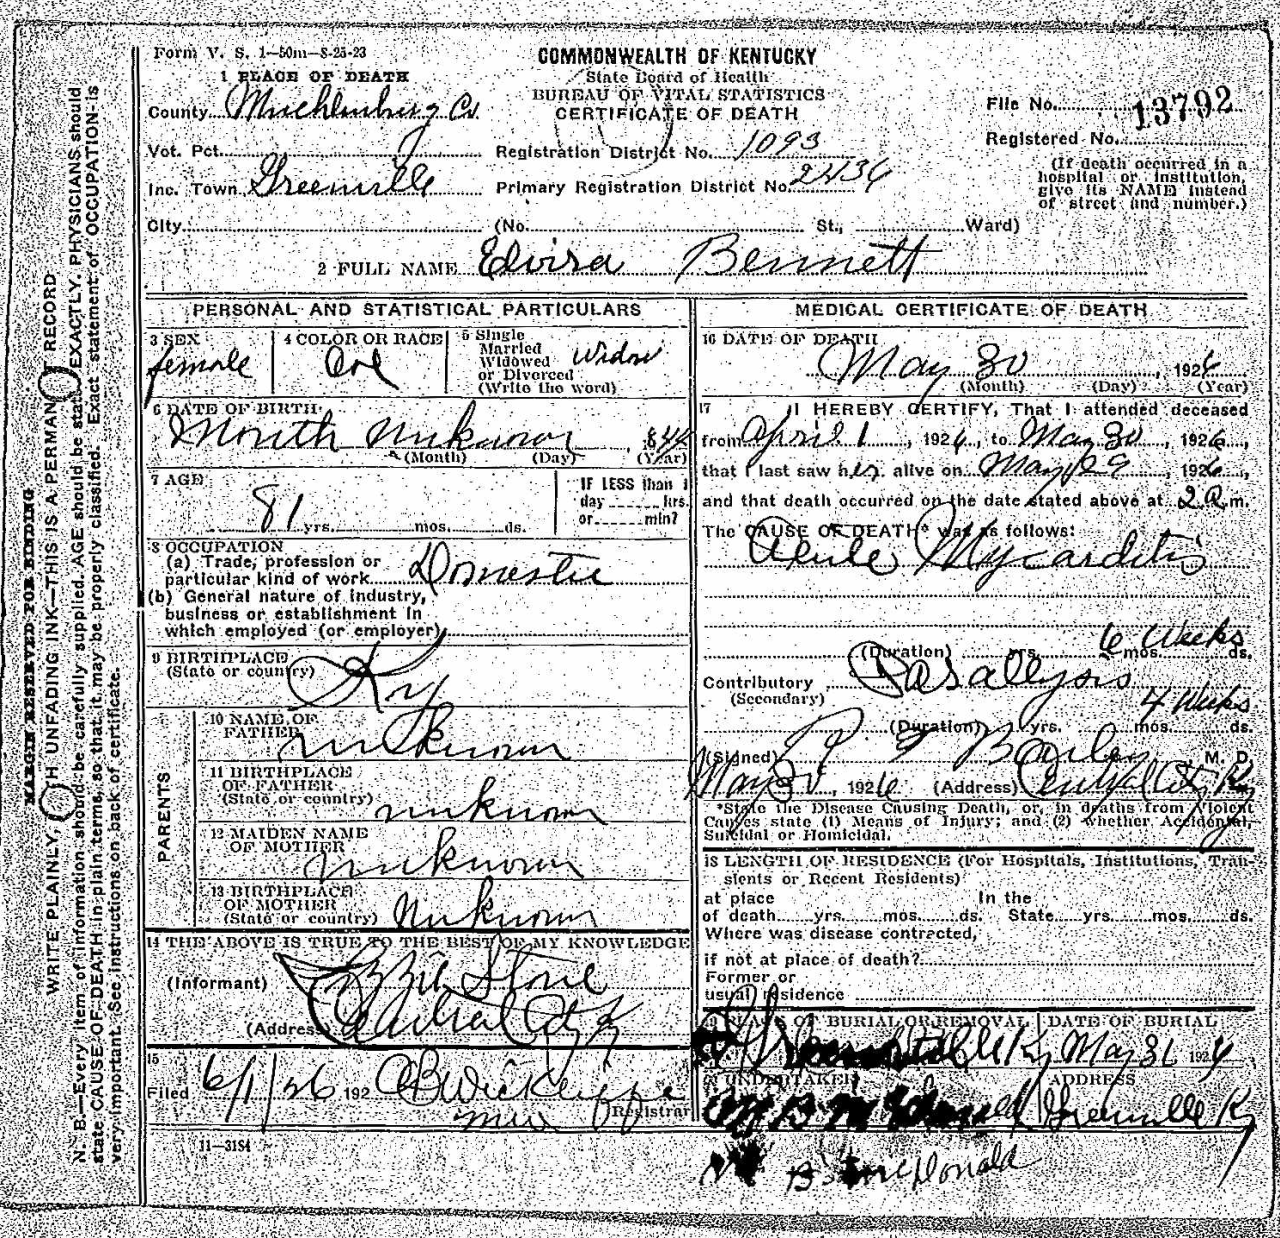 Form V. S. 1—50m—8-25-23
COMMONWEALTH OF KENTUCKY
State Board of Health
BUREAU OF VITAL STATISTICS
CERTIFICATE OF DEATH
File No. 13792
Registered No.
(If death occurred in a
hospital or institution,
give its NAME instead
of street and number.)
1 PLACE OF DEATH
County Muchlenburg Co
Vot. Pct.
Registration District No. 1093
Inc. Town Greenville
Primary Registration District No. 2436
City
(No. St., Ward)
2 FULL NAME Elvira Bennett
PERSONAL AND STATISTICAL PARTICULARS
3 SEX
female
4 COLOR OR RACE
Col
5 Single
Married
Widowed
or Divorced
(Write the word)
Widow
6 DATE OF BIRTH
Month unknown 844
(Month) (Day) (Year)
7 AGE
81 yrs. mos. ds.
IF LESS than 1
day hrs.
or min?
8 OCCUPATION
(a) Trade, profession or
particular kind of work Domestic
(b) General nature of industry,
business or establishment in
which employed (or employer)
9 BIRTHPLACE
(State or country)
Ky
PARENTS
10 NAME OF
FATHER
unknown
11 BIRTHPLACE
OF FATHER
(State or country)
unknown
12 MAIDEN NAME
OF MOTHER
unknown
13 BIRTHPLACE
OF MOTHER
(State or country)
unknown
14 THE ABOVE IS TRUE TO THE BEST OF MY KNOWLEDGE
(Informant) Stone
(Address) Central City Ky
15
Filed 6/1/26 192 CB Wickliffe
Registrar
11—3184
MEDICAL CERTIFICATE OF DEATH
16 DATE OF DEATH
May 30, 1926
(Month) (Day) (Year)
17 I HEREBY CERTIFY, That I attended deceased
from April 1, 1926, to May 30, 1926,
that I last saw her alive on May 29, 1926,
and that death occurred on the date stated above at 2 a.m.
The CAUSE OF DEATH* was as follows:
Acute Mycarditis
6 Weeks
(Duration) yrs. mos. ds.
Contributory Parallysis
(Secondary)
4 Weeks
(Duration) yrs. mos. ds.
(Signed) M. D.
May 30, 1926 (Address) Central City Ky
*State the Disease Causing Death, or, in deaths from Violent
Causes state (1) Means of Injury; and (2) whether Accidental,
Suicidal or Homicidal.
18 LENGTH OF RESIDENCE (For Hospitals, Institutions, Tran-
sients or Recent Residents)
at place In the
of death yrs. mos. ds. State yrs. mos. ds.
Where was disease contracted,
if not at place of death?
Former or
usual residence
19 PLACE OF BURIAL OR REMOVAL
DATE OF BURIAL
Ky May 31 1926
20 UNDERTAKER
ADDRESS
Greenville Ky
B McDonald
MARGIN RESERVED FOR BINDING
WRITE PLAINLY, WITH UNFADING INK—THIS IS A PERMANENT RECORD
N. B.—Every item of information should be carefully supplied. AGE should be stated EXACTLY. PHYSICIANS should
state CAUSE OF DEATH in plain terms, so that it may be properly classified. Exact statement of OCCUPATION is
very important. See instructions on back of certificate.